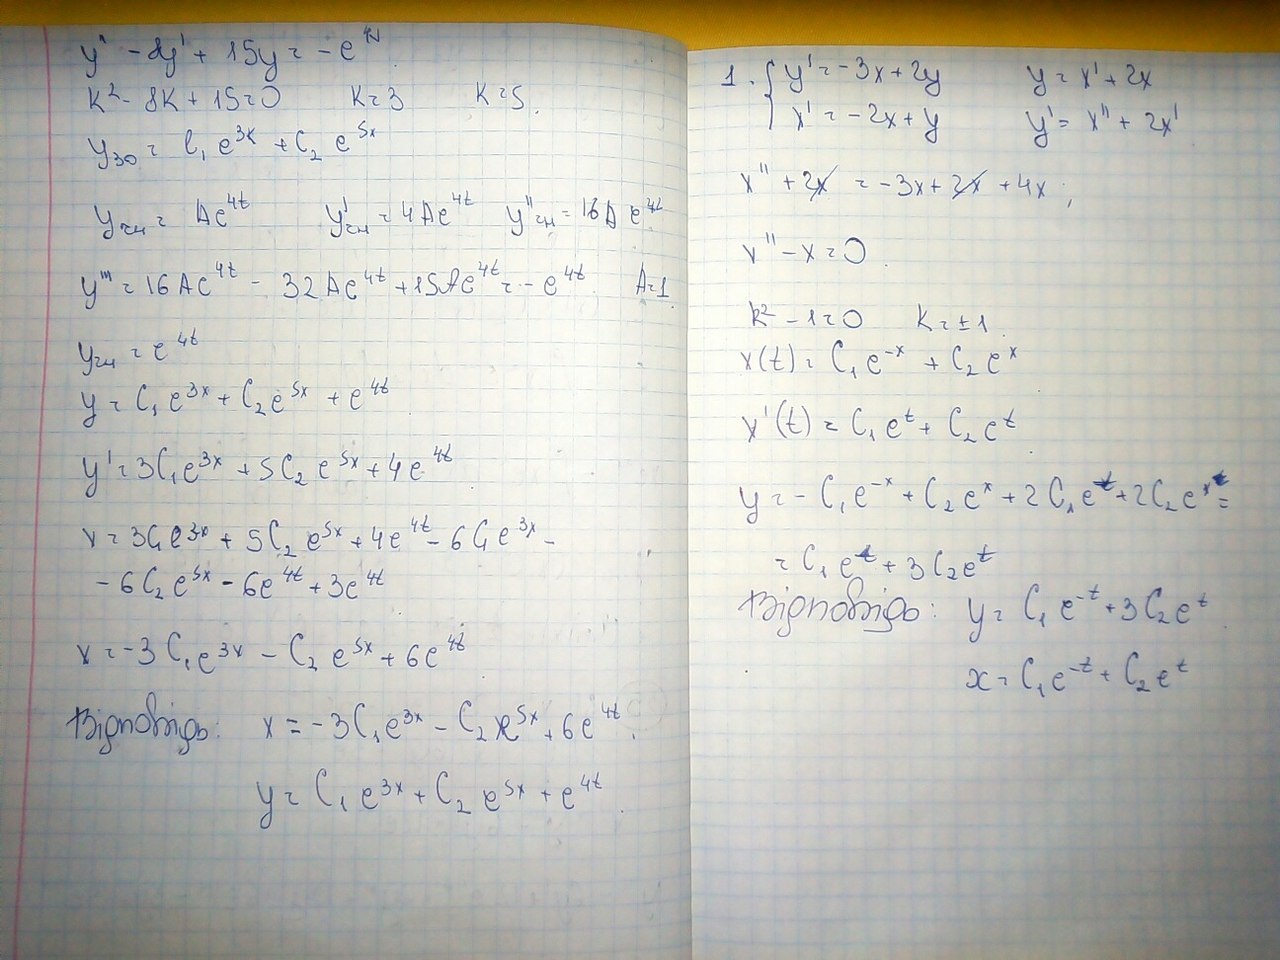 y'' - 8y' + 15y = -e^{4t}
k² - 8k + 15 = 0 k = 3 k = 5.
y_{зо} = C₁e^{3x} + C₂e^{5x}
y_{чн} = Ae^{4t} y'_{чн} = 4Ae^{4t} y''_{чн} = 16Ae^{4t}
y''' = 16Ae^{4t} - 32Ae^{4t} + 15Ae^{4t} = -e^{4t} A = 1
y_{чн} = e^{4t}
y = C₁e^{3x} + C₂e^{5x} + e^{4t}
y' = 3C₁e^{3x} + 5C₂e^{5x} + 4e^{4t}
x = 3C₁e^{3x} + 5C₂e^{5x} + 4e^{4t} - 6C₁e^{3x} -
- 6C₂e^{5x} - 6e^{4t} + 3e^{4t}
x = -3C₁e^{3x} - C₂e^{5x} + 6e^{4t}
Відповідь: x = -3C₁e^{3x} - C₂e^{5x} + 6e^{4t};
y = C₁e^{3x} + C₂e^{5x} + e^{4t}
1. { y' = -3x + 2y y = x' + 2x
x' = -2x + y y' = x'' + 2x'
x'' + 2x = -3x + 2x + 4x;
x'' - x = 0
k² - 1 = 0 k = ±1
x(t) = C₁e^{-x} + C₂e^{x}
x'(t) = C₁e^{t} + C₂e^{t}
y = -C₁e^{-x} + C₂e^{x} + 2C₁e^{-t} + 2C₂e^{t} =
= C₁e^{-t} + 3C₂e^{t}
Відповідь: y = C₁e^{-t} + 3C₂e^{t}
x = C₁e^{-t} + C₂e^{t}